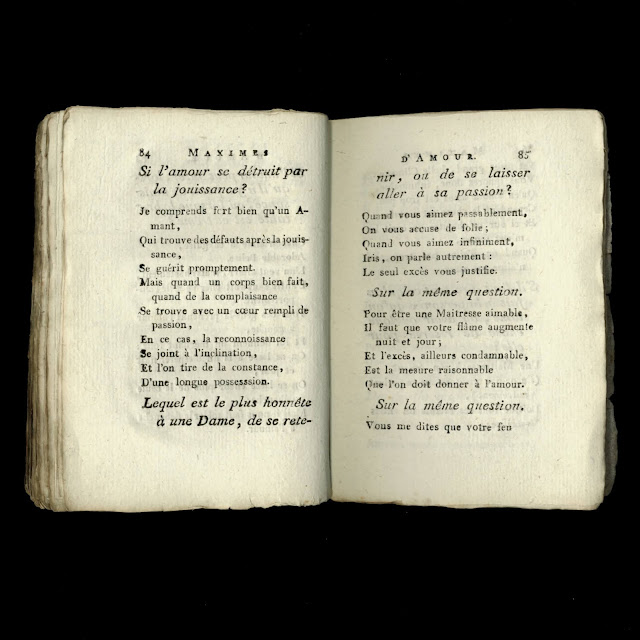 84 MAXIMES
Si l'amour se détruit par
la jouissance?
Je comprends fort bien qu'un A-
mant,
Qui trouve des défauts après la jouis-
sance,
Se guérit promptement.
Mais quand un corps bien fait,
quand de la complaisance
Se trouve avec un cœur rempli de
passion,
En ce cas, la reconnoissance
Se joint à l'inclination,
Et l'on tire de la constance,
D'une longue possession.
Lequel est le plus honnête
à une Dame, de se rete-
D'AMOUR. 85
nir, ou de se laisser
aller à sa passion?
Quand vous aimez passablement,
On vous accuse de folie;
Quand vous aimez infiniment,
Iris, on parle autrement:
Le seul excès vous justifie.
Sur la même question.
Pour être une Maitresse aimable,
Il faut que votre flâme augmente
nuit et jour;
Et l'excès, ailleurs condamnable,
Est la mesure raisonnable
Que l'on doit donner à l'amour.
Sur la même question.
Vous me dites que votre feu